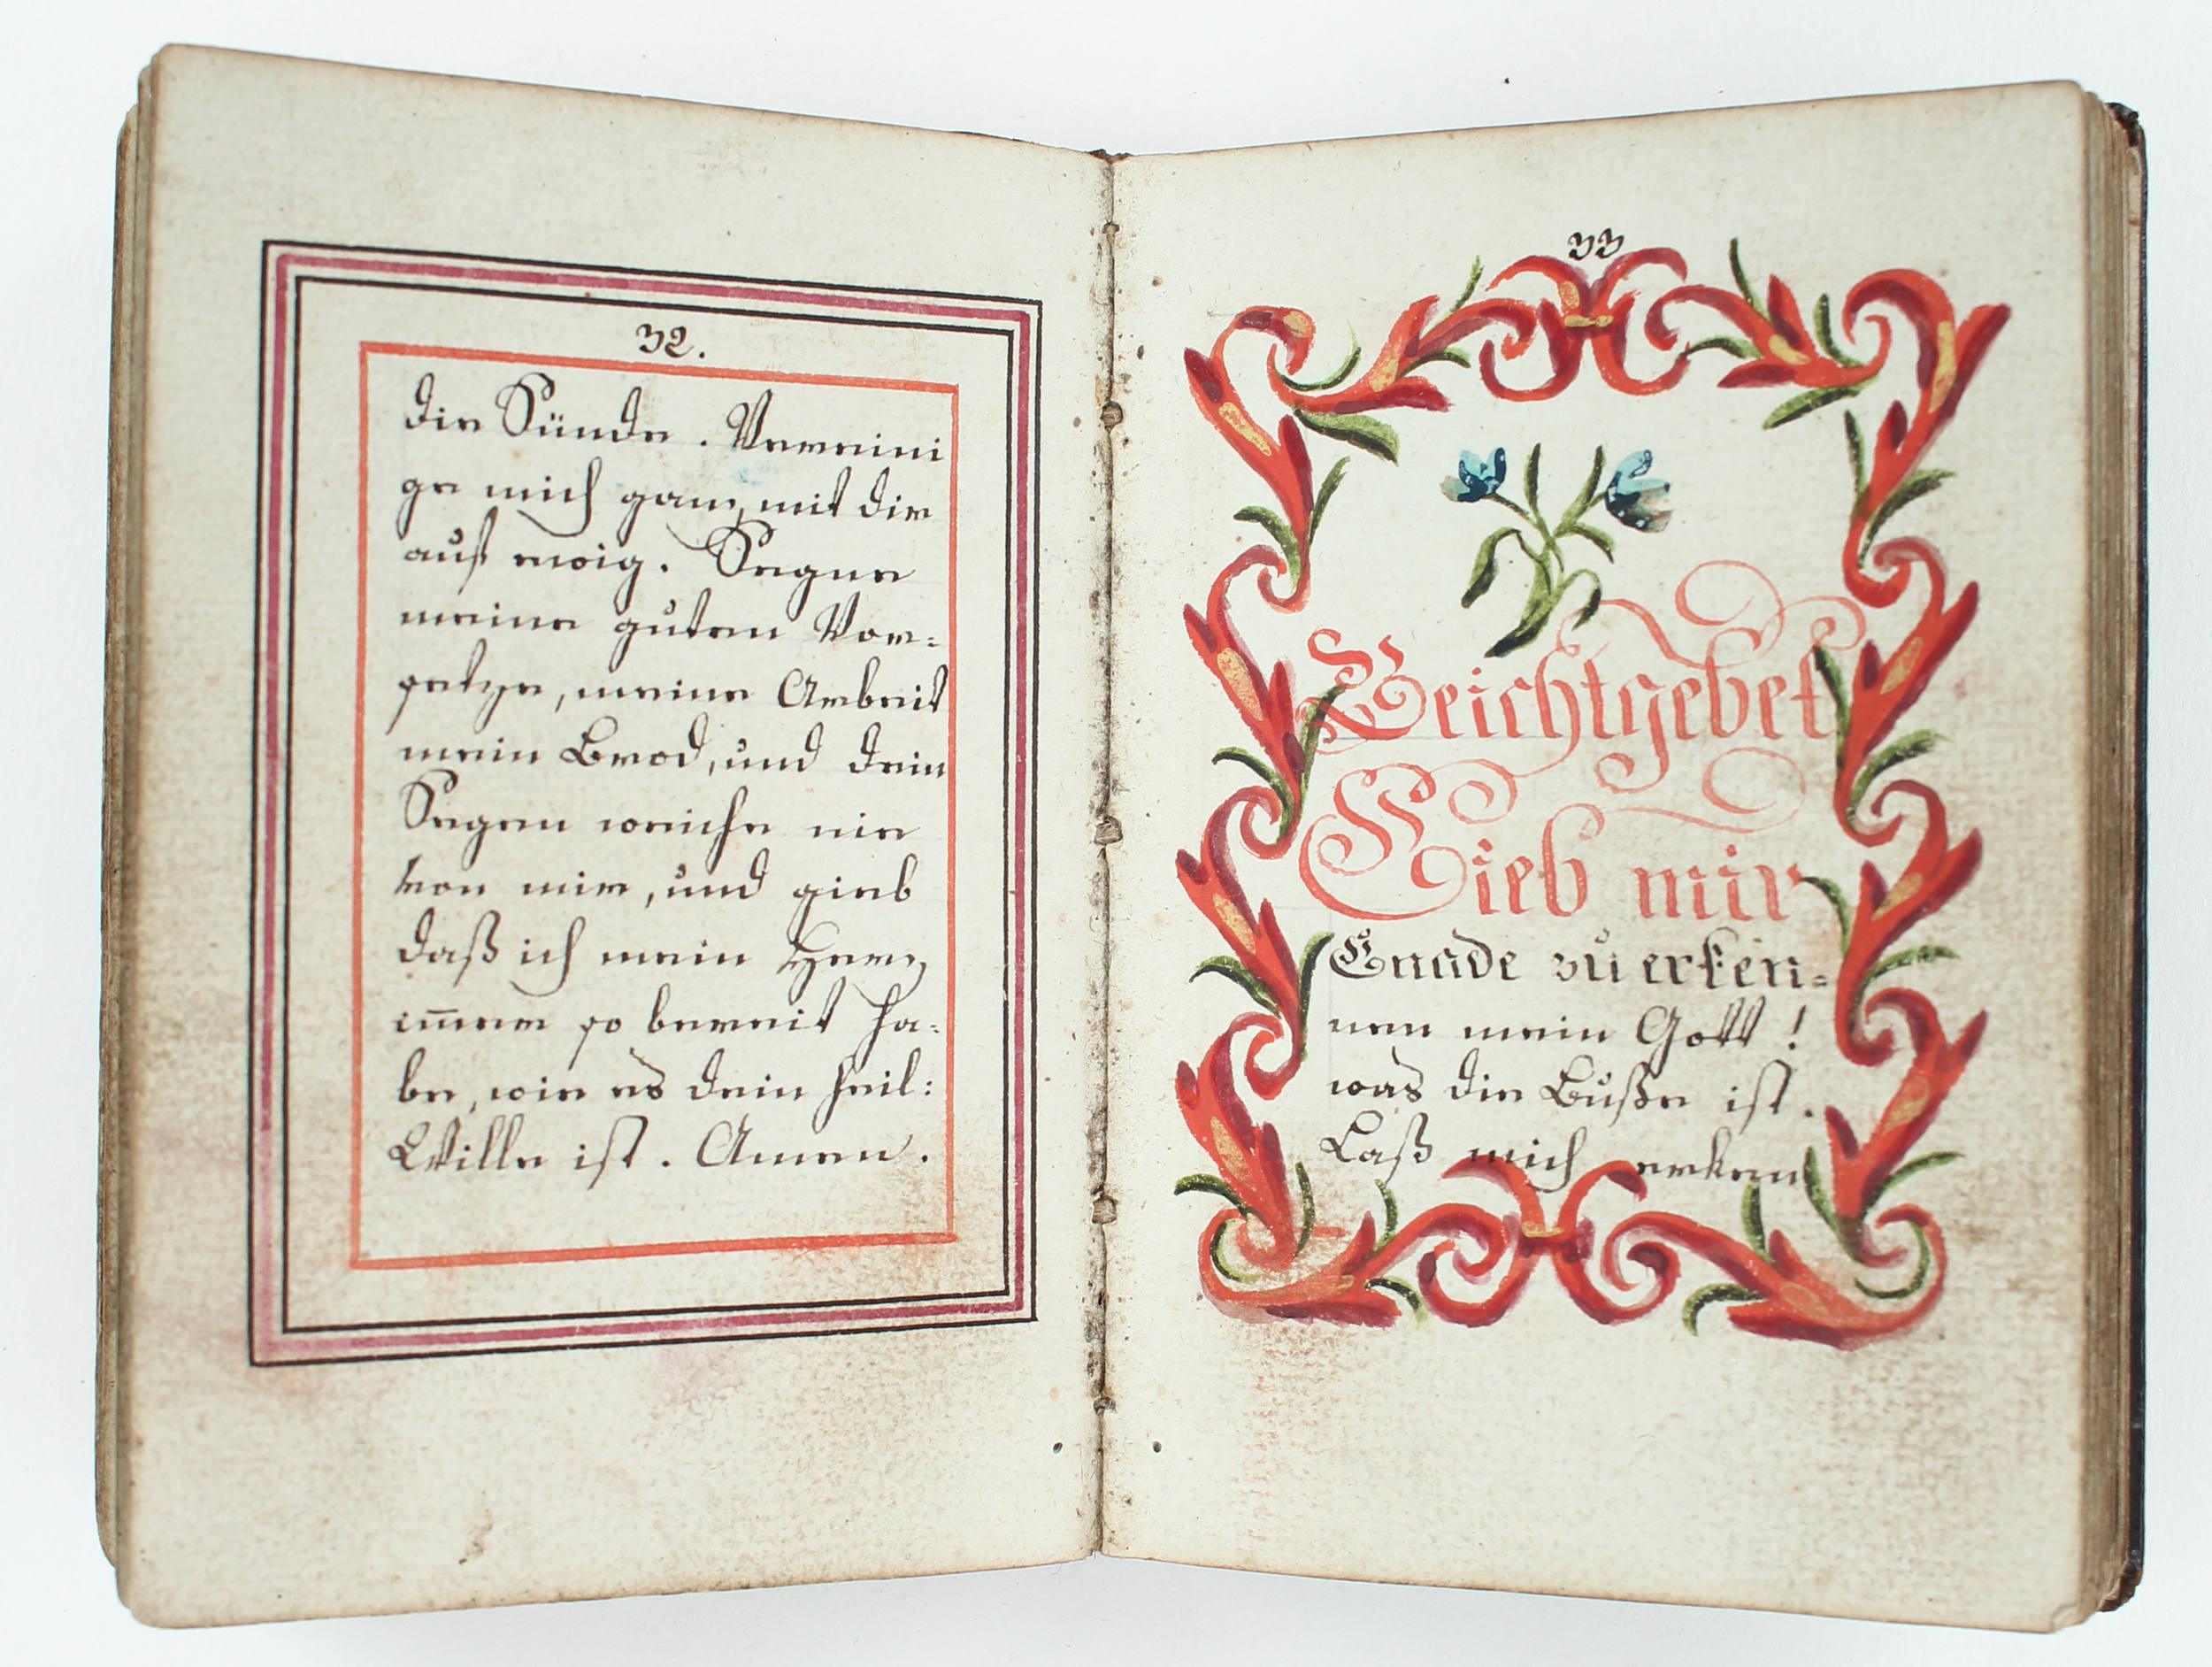 32.
die Sünde. Vereini
ge mich ganz mit dir
auf ewig. Segne
meine guten Vor=
setze, meine Arbeit
mein Brod, und dein
Segen weiche nie
von mir, und gieb
daß ich mein Herz
im̅er so bereit ha=
be, wie es dein heil:
Wille ist. Amen.
33
Beichtgebet
Gieb mir
Gnade zu erken=
nen mein Gott!
was die Buße ist.
Laß mich erken